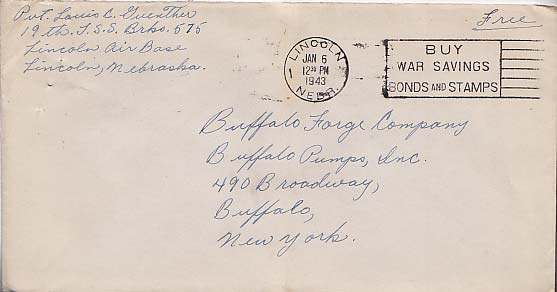 Pvt. Louis C. Guenther
19th. T.S.S. Brks. 575
Lincoln Air Base
Lincoln, Nebraska.
Free
LINCOLN
1
JAN 6
12 30 PM
1943
NEBR.
BUY
WAR SAVINGS
BONDS AND STAMPS
Buffalo Forge Company
Buffalo Pumps, Inc.
490 Broadway,
Buffalo,
New York.